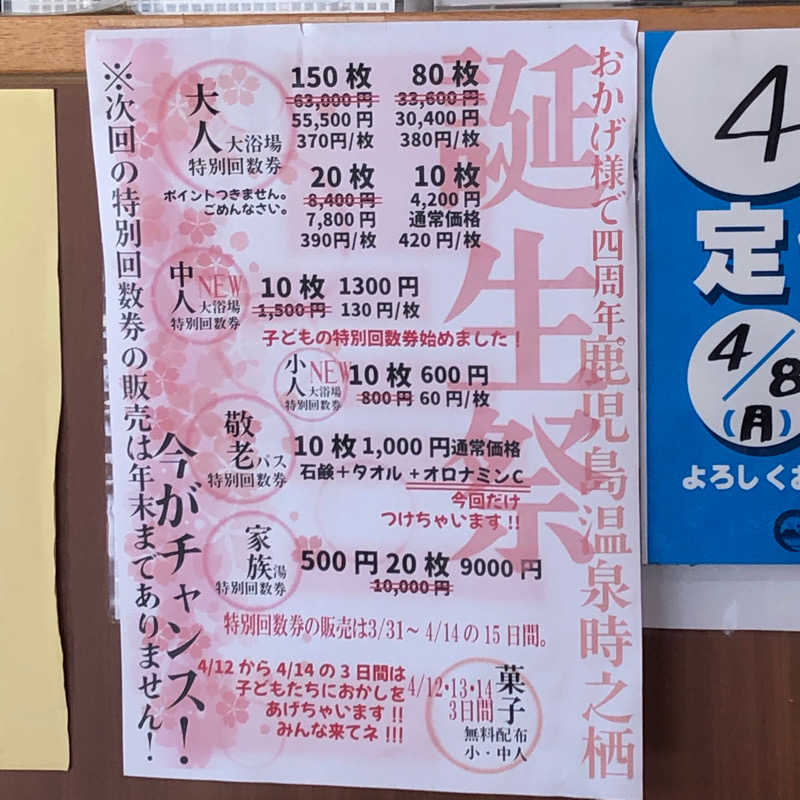 おかげ様で四周年。鹿児島温泉時之栖
誕生祭
大人
大浴場
特別回数券
ポイントつきません。
ごめんなさい。
150枚
63,000円
55,500円
370円/枚
80枚
33,600円
30,400円
380円/枚
20枚
8,400円
7,800円
390円/枚
10枚
4,200円
通常価格
420円/枚
中人
NEW
大浴場
特別回数券
10枚 1300円
1,500円 130円/枚
子どもの特別回数券始めました!
小人
NEW
大浴場
特別回数券
10枚 600円
800円 60円/枚
敬老パス
特別回数券
10枚 1,000円 通常価格
石鹸+タオル+オロナミンC
今回だけ
つけちゃいます!!
家族湯
特別回数券
500円 20枚 9000円
10,000円
特別回数券の販売は3/31～4/14の15日間。
4/12から4/14の3日間は
子どもたちにおかしを
あげちゃいます!!
みんな来てネ!!!
4/12・13・14
3日間
菓子
無料配布
小・中人
今がチャンス!
※次回の特別回数券の販売は年末までありません!
4
定
4/8
(月)
よろしくお